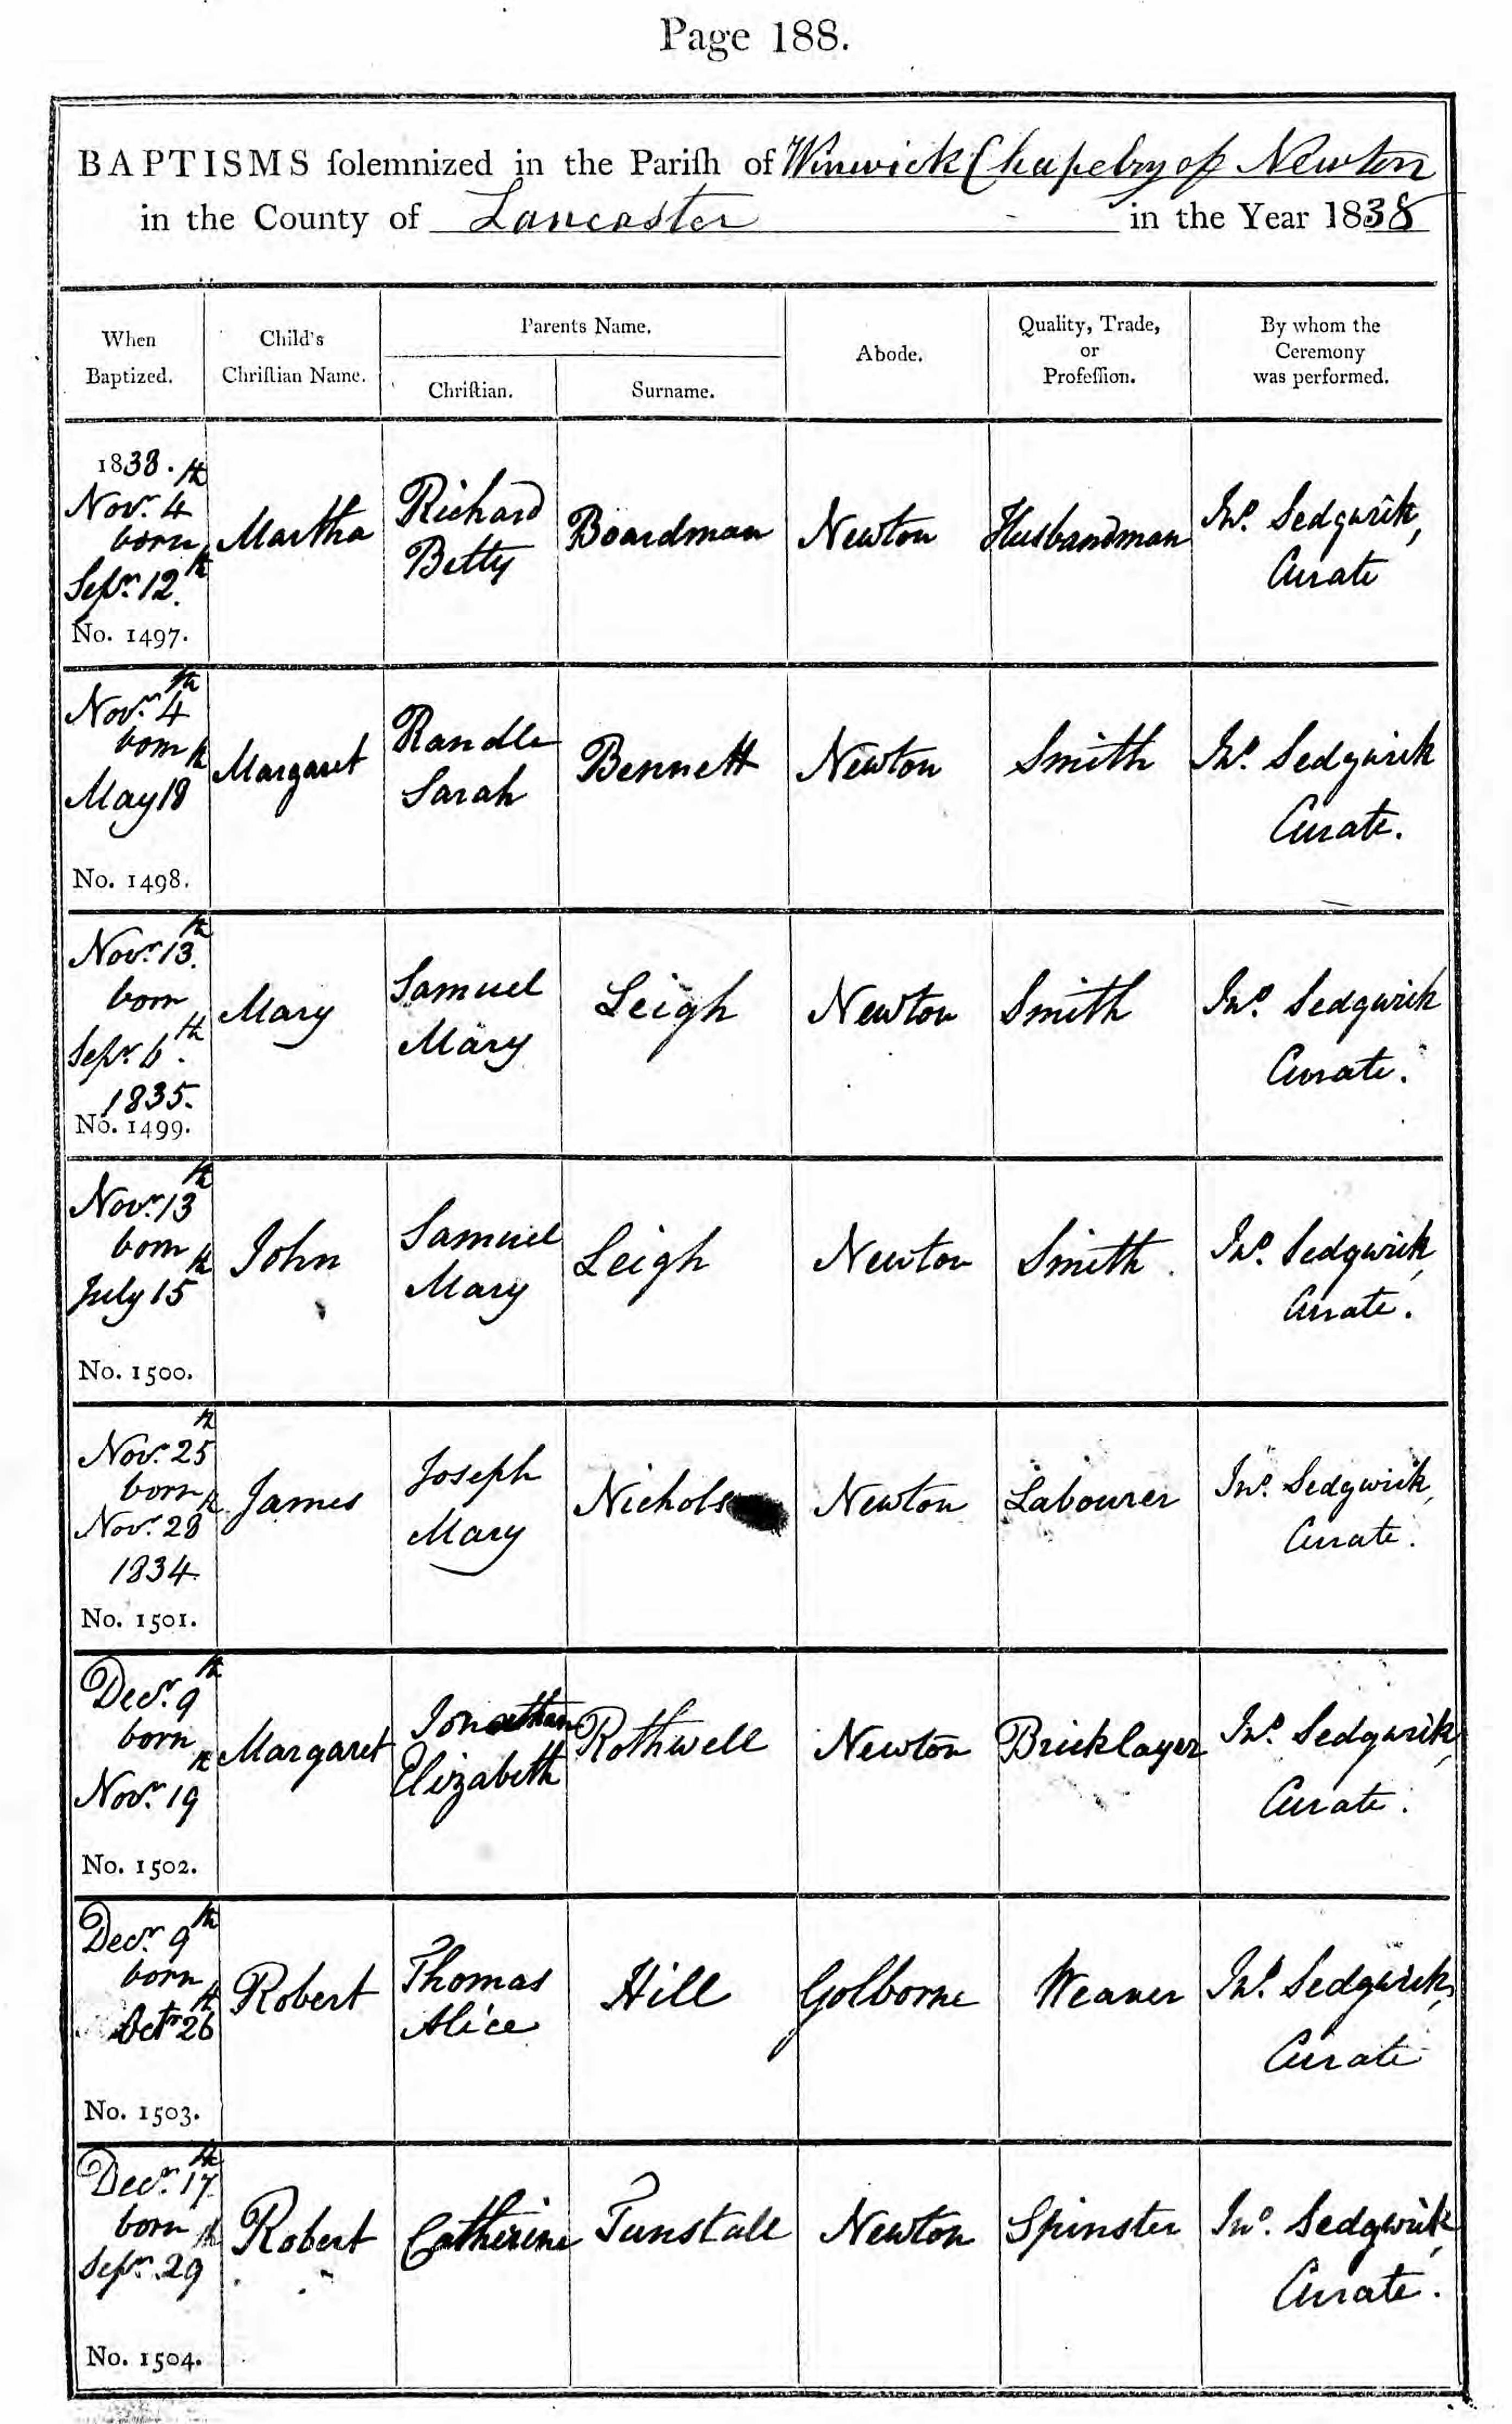 Page 188.
BAPTISMS ſolemnized in the Pariſh of Winwick Chapelry of Newton
in the County of Lancaster in the Year 1838
When
Baptized.
Child's
Chriſtian Name.
Parents Name.
Chriſtian.
Surname.
Abode.
Quality, Trade,
or
Profeſſion.
By whom the
Ceremony
was performed.
1838.
Novr. 4th
born
Sepr. 12th.
No. 1497.
Martha
Richard
Betty
Boardman
Newton
Husbandman
Jno. Sedgwick,
Curate
Novr. 4th
born
May 18th
No. 1498.
Margaret
Randle
Sarah
Bennett
Newton
Smith
Jno. Sedgwick
Curate.
Novr. 13th.
born
Sepr. 6th.
1835.
No. 1499.
Mary
Samuel
Mary
Leigh
Newton
Smith
Jno. Sedgwick
Curate.
Novr. 13th
born
July 15th
No. 1500.
John
Samuel
Mary
Leigh
Newton
Smith.
Jno. Sedgwick,
Curate.
Novr. 25th
born
Novr. 28th
1834.
No. 1501.
James
Joseph
Mary
Nichols
Newton
Labourer
Jno. Sedgwick,
Curate.
Decr. 9th
born
Novr. 19th
No. 1502.
Margaret
Jonathan
Elizabeth
Rothwell
Newton
Bricklayer
Jno. Sedgwick,
Curate.
Decr. 9th
born
Octr. 26th
No. 1503.
Robert
Thomas
Alice
Hill
Golborne
Weaver
Jno. Sedgwick,
Curate
Decr. 17th
born
Sepr. 29th
No. 1504.
Robert
Catherine
Tunstall
Newton
Spinster
Jno. Sedgwick,
Curate.